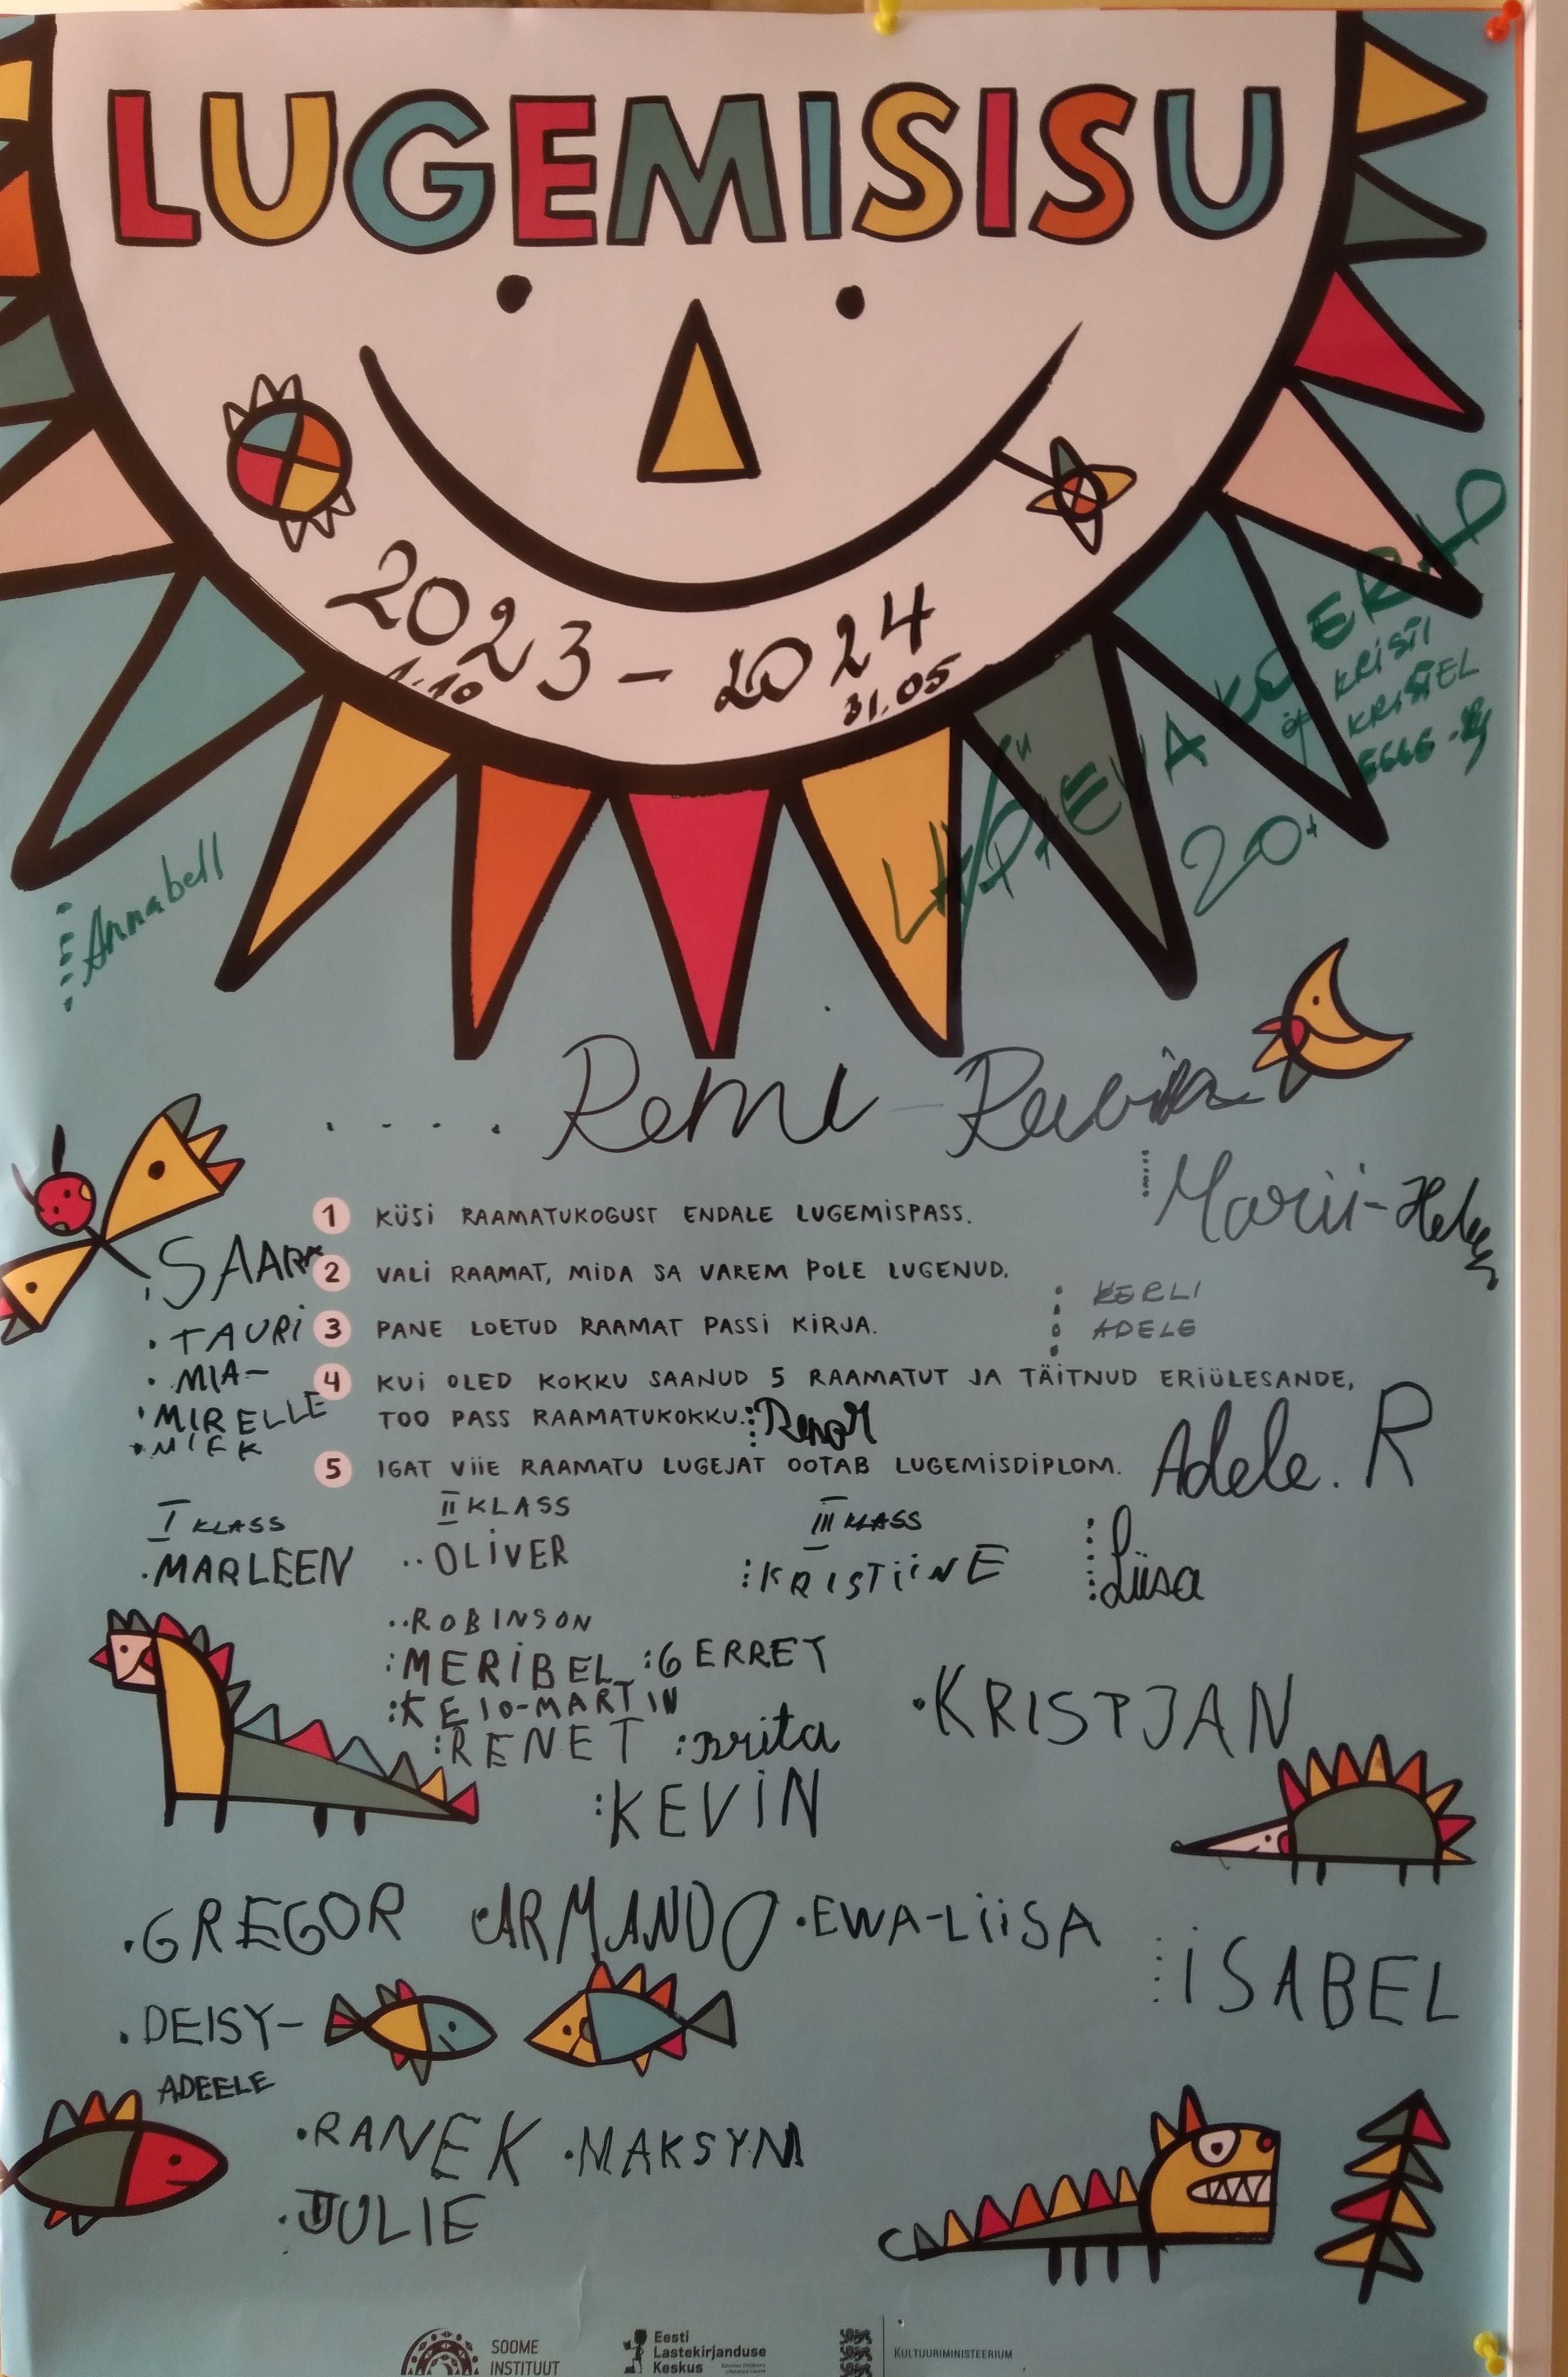 LUGEMISISU
2023 - 2024
1.10
31.05
KRISTI
KRISTEL
20+
Annabell
Remi -
Marii-
1 KÜSI RAAMATUKOGUST ENDALE LUGEMISPASS.
2 VALI RAAMAT, MIDA SA VAREM POLE LUGENUD.
3 PANE LOETUD RAAMAT PASSI KIRJA.
4 KUI OLED KOKKU SAANUD 5 RAAMATUT JA TÄITNUD ERIÜLESANDE,
TOO PASS RAAMATUKOKKU.
5 IGAT VIIE RAAMATU LUGEJAT OOTAB LUGEMISDIPLOM.
TAURI
MIA-
MIRELLE
KERLI
ADELE
Adele. R
I KLASS
II KLASS
III KLASS
MARLEEN
OLIVER
:KRISTIINE
Liisa
ROBINSON
:MERIBEL :GERRET
:KEIO-MARTIN
:RENET :Brita
:KEVIN
KRISTJAN
GREGOR ARMANDO EWA-LIISA
ISABEL
DEISY-
ADEELE
RANEK MAKSYM
JULIE
SOOME
INSTITUUT
Eesti
Lastekirjanduse
Keskus
KULTUURIMINISTEERIUM